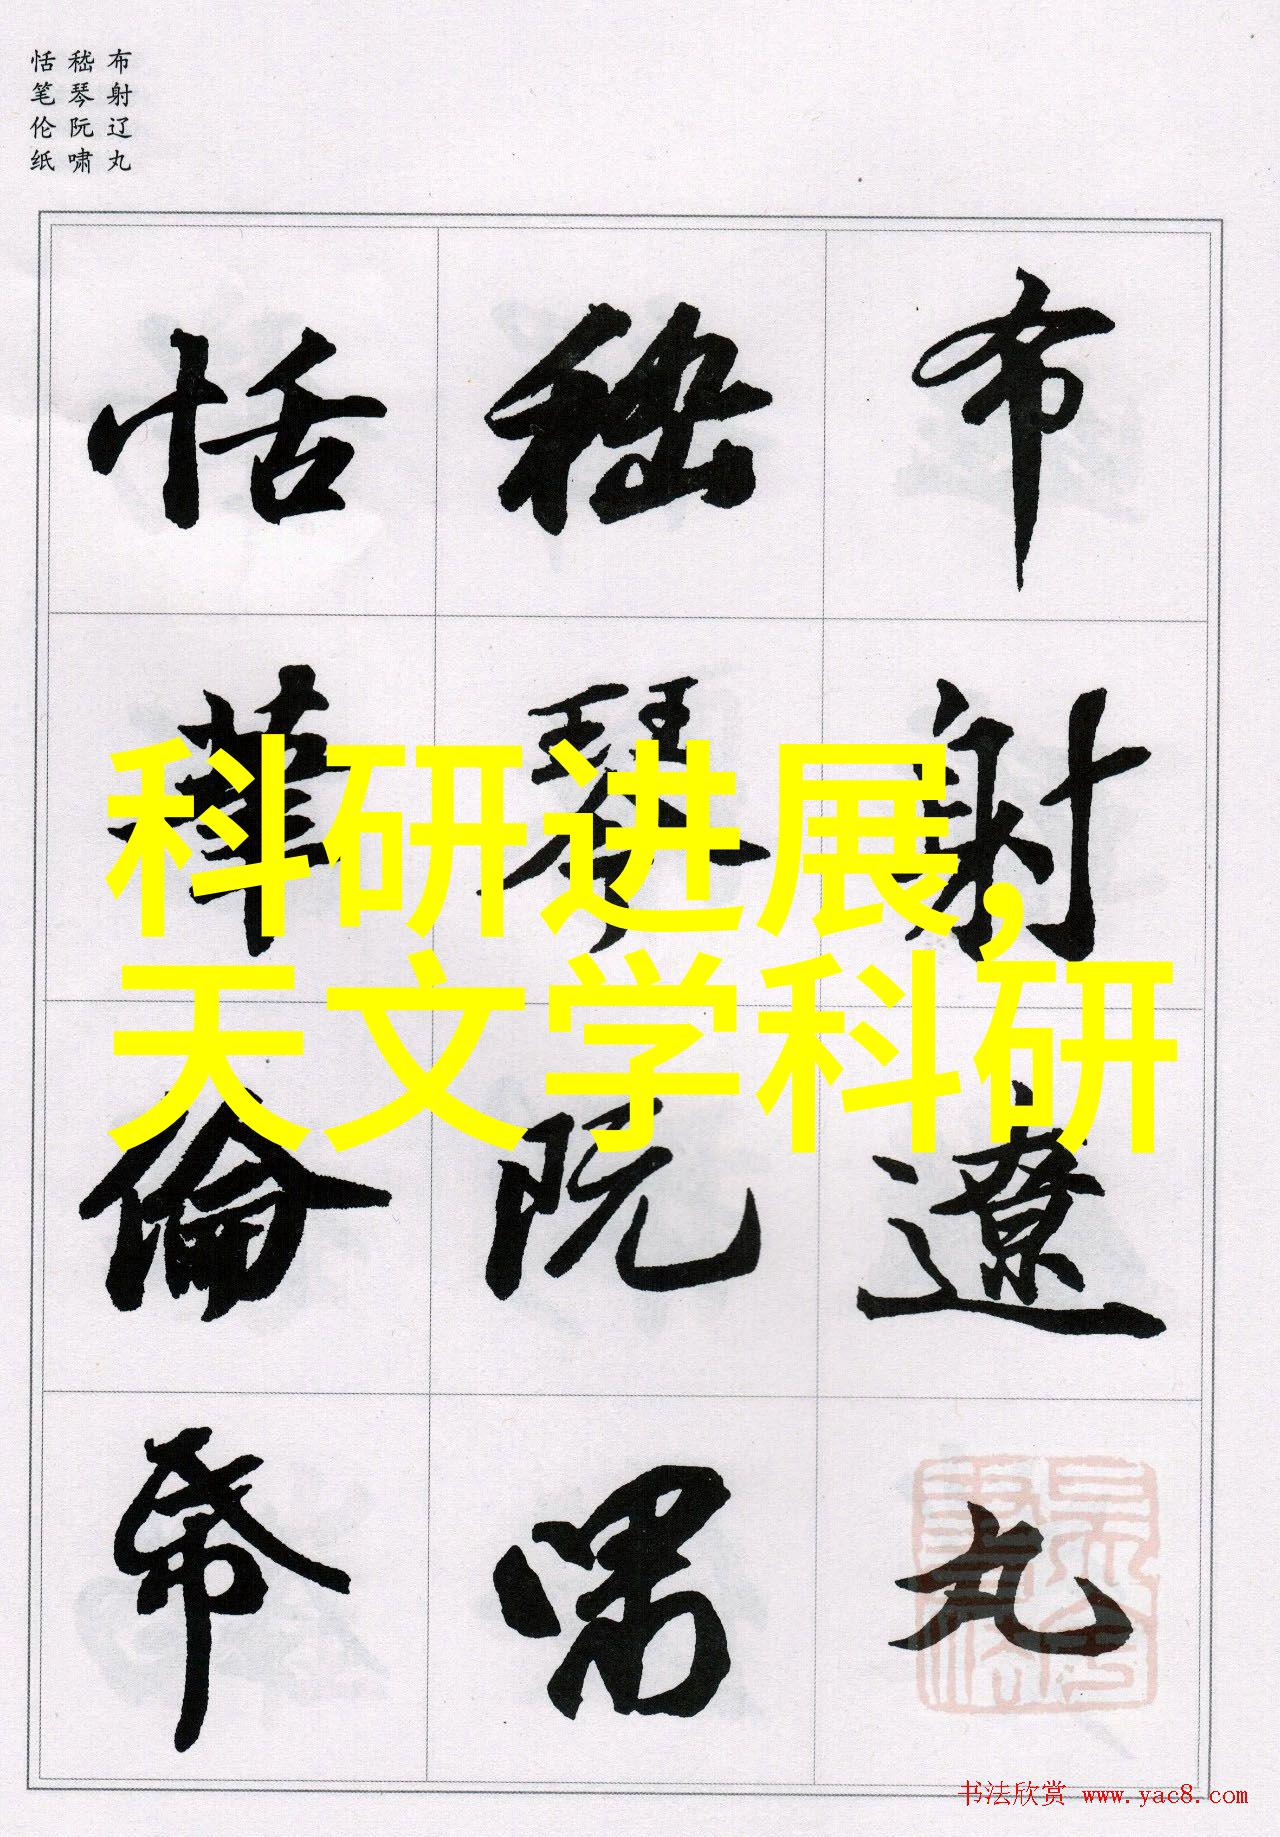 布射辽丸
嵇琴阮啸
恬笔伦纸
布射遼丸
嵇琴阮嘯
恬筆倫帋
科研进展,
天文学科研
书法欣赏 www.yac8.com